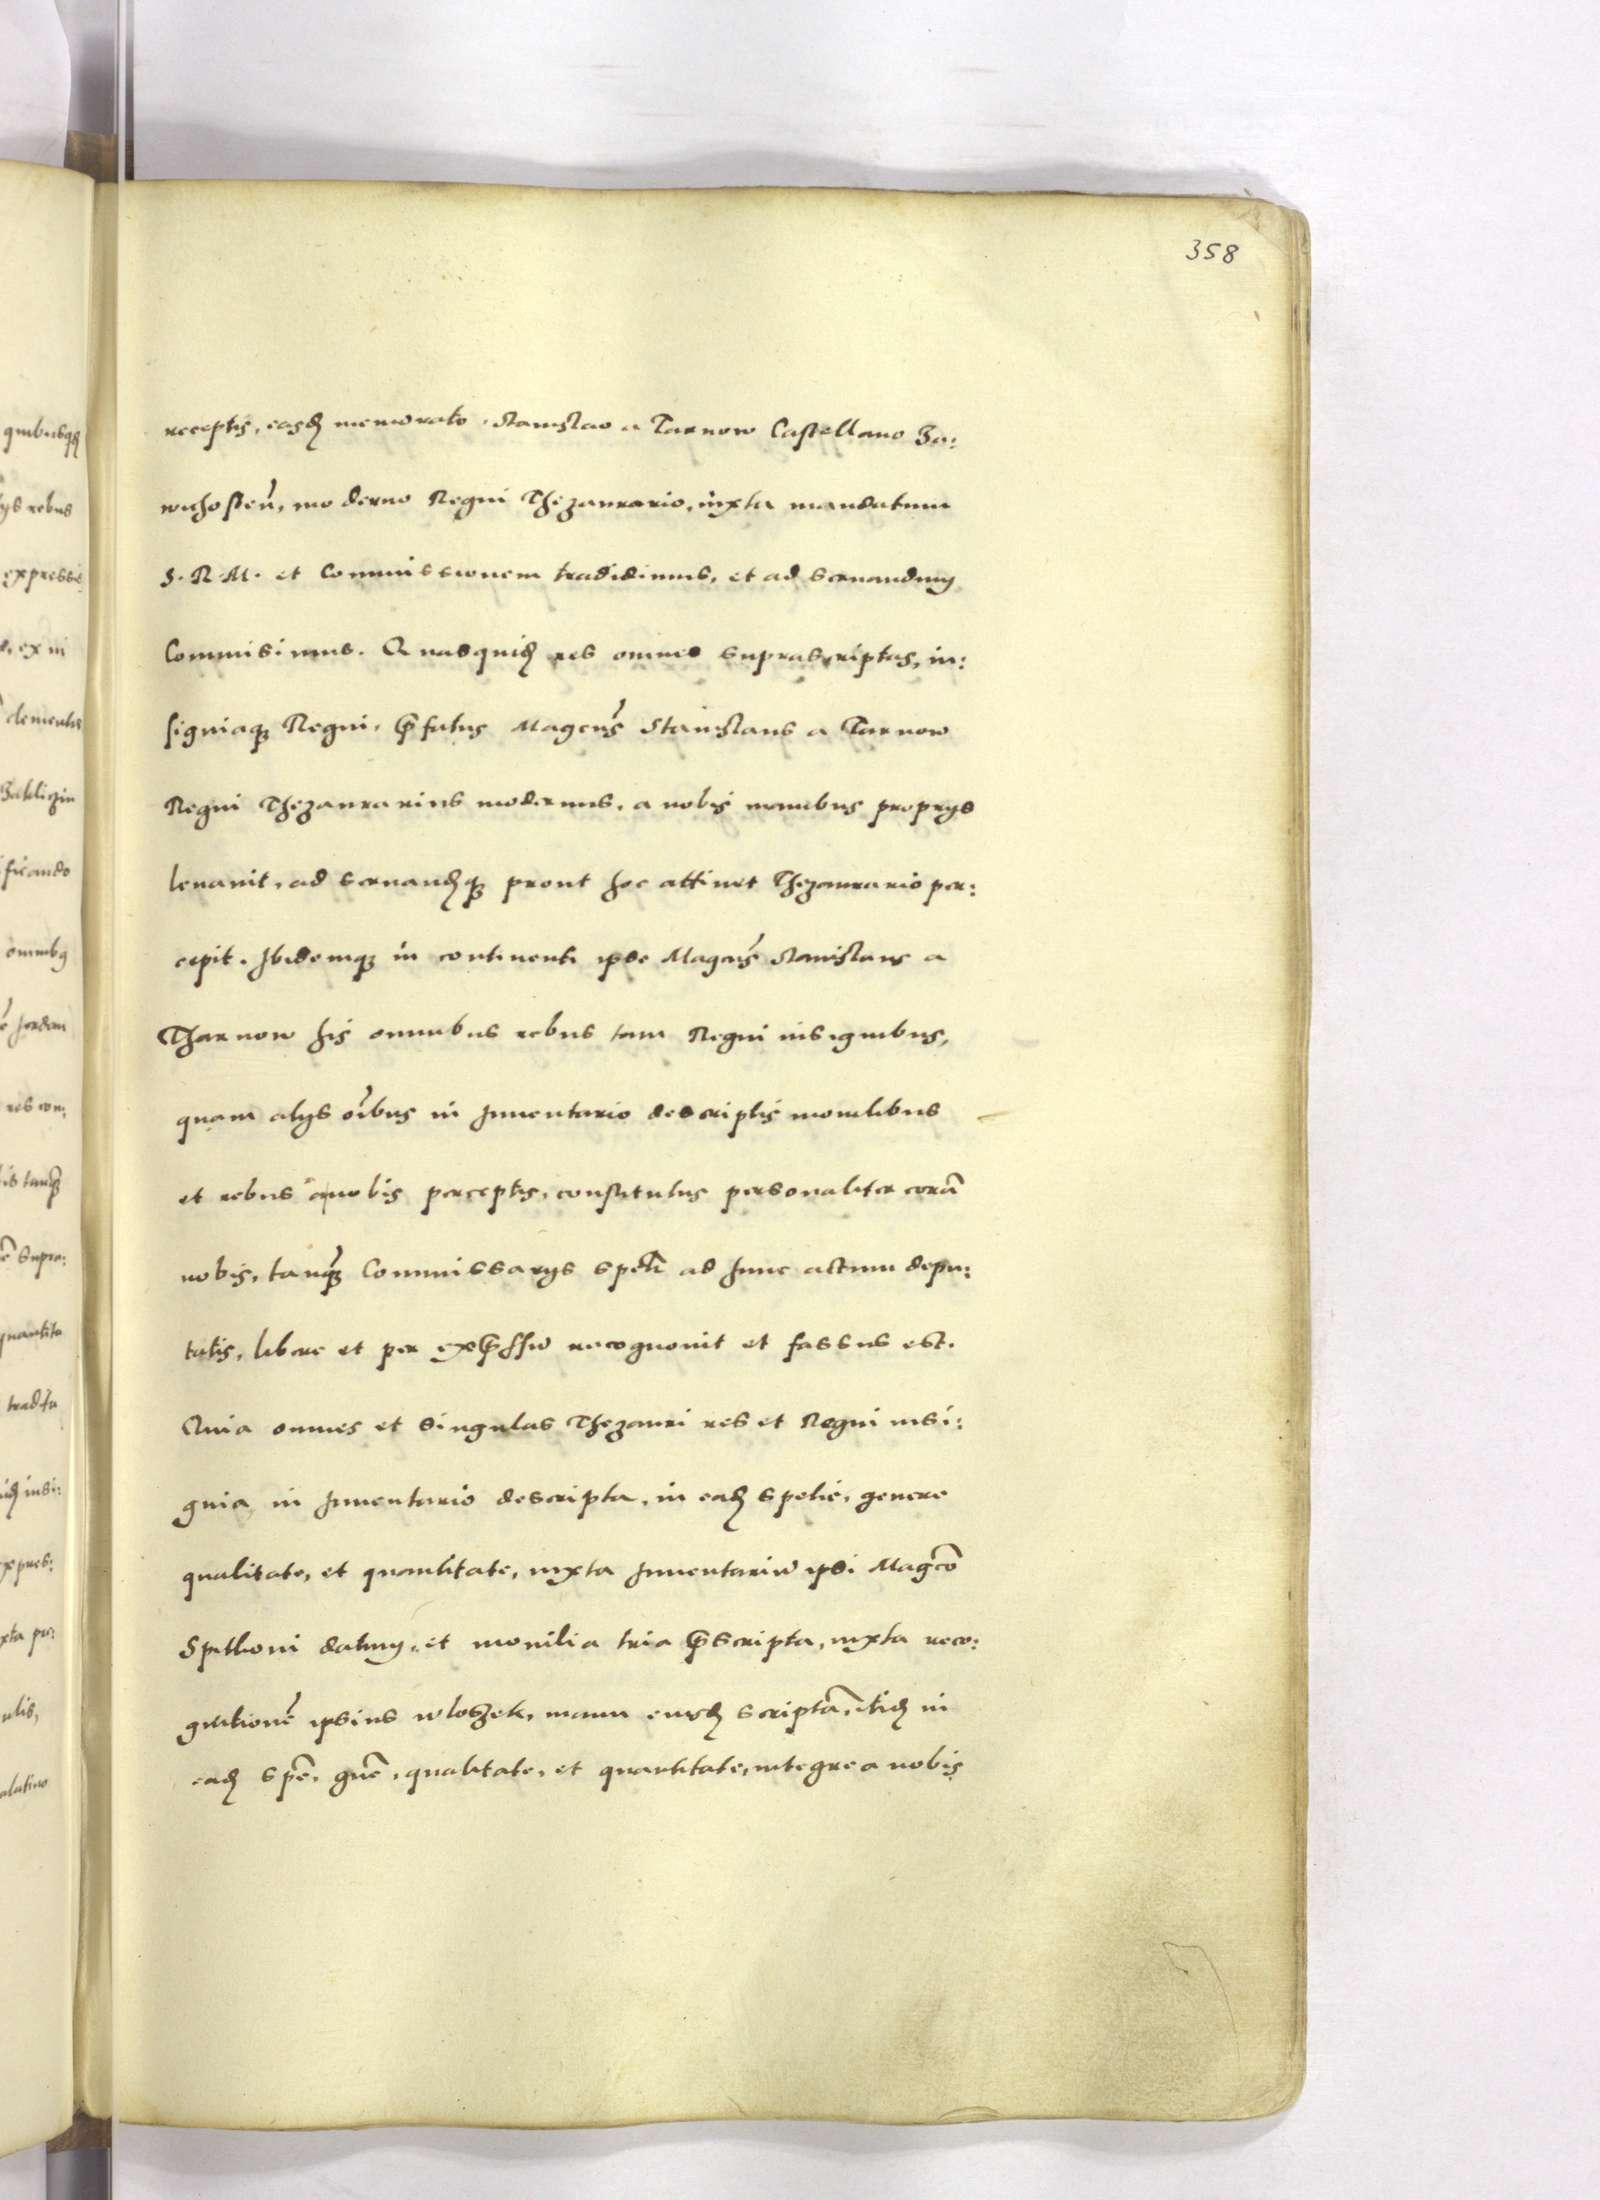 358
receptis, easdē memorato Stanislao a Tarnow Castellano Za:
wichosteñ, moderno Regni Thezaurario, iuxta mandatum
S. R. M. et Commissionem tradidimus, et ad seruandum
Commisimus. Quasquidē res omnes suprascriptas, in:
signiaqꝫ Regni, p̄fatus Magcūs Stanislaus a Tarnow
Regni Thezaurarius modernus, a nobis manibus proprys
leuauit, ad seruandūqꝫ prout hoc attinet Thezaurario per:
cepit. Ibidemqꝫ in continenti ipse Magcūs Stanislaus a
Tharnow his omnibus rebus tam Regni insignibus,
quam alys oībus in Inuentario descriptis monilibus
et rebus a nobis perceptis, constitutus personaliter corā
nobis, tanqꝫ Commissarys spetī ad hunc actum depu:
tatis, libere et per exp̄ssū recognouit et fassus est.
Quia omnes et singulas Thezauri res et Regni insi:
gnia, in Inuentario descripta, in eadē spetie, genere
qualitate, et quantitate, iuxta Inuentariū ipsi Magcō
Spitkoni datum, et monilia tria p̄scripta, iuxta reco:
gnitionē ipsius Wloszek, manu eiusdē scriptā, itidē in
eadē spē, gnē, qualitate, et quantitate, integre a nobis
quibusqdē
ys rebus
expressis
ex in
clementer
Zakliczin
ficando
omnibꝫ
Jordan
res con:
is tanqꝫ
supra:
quantita
tradita
insi:
xpres:
xta
alatino